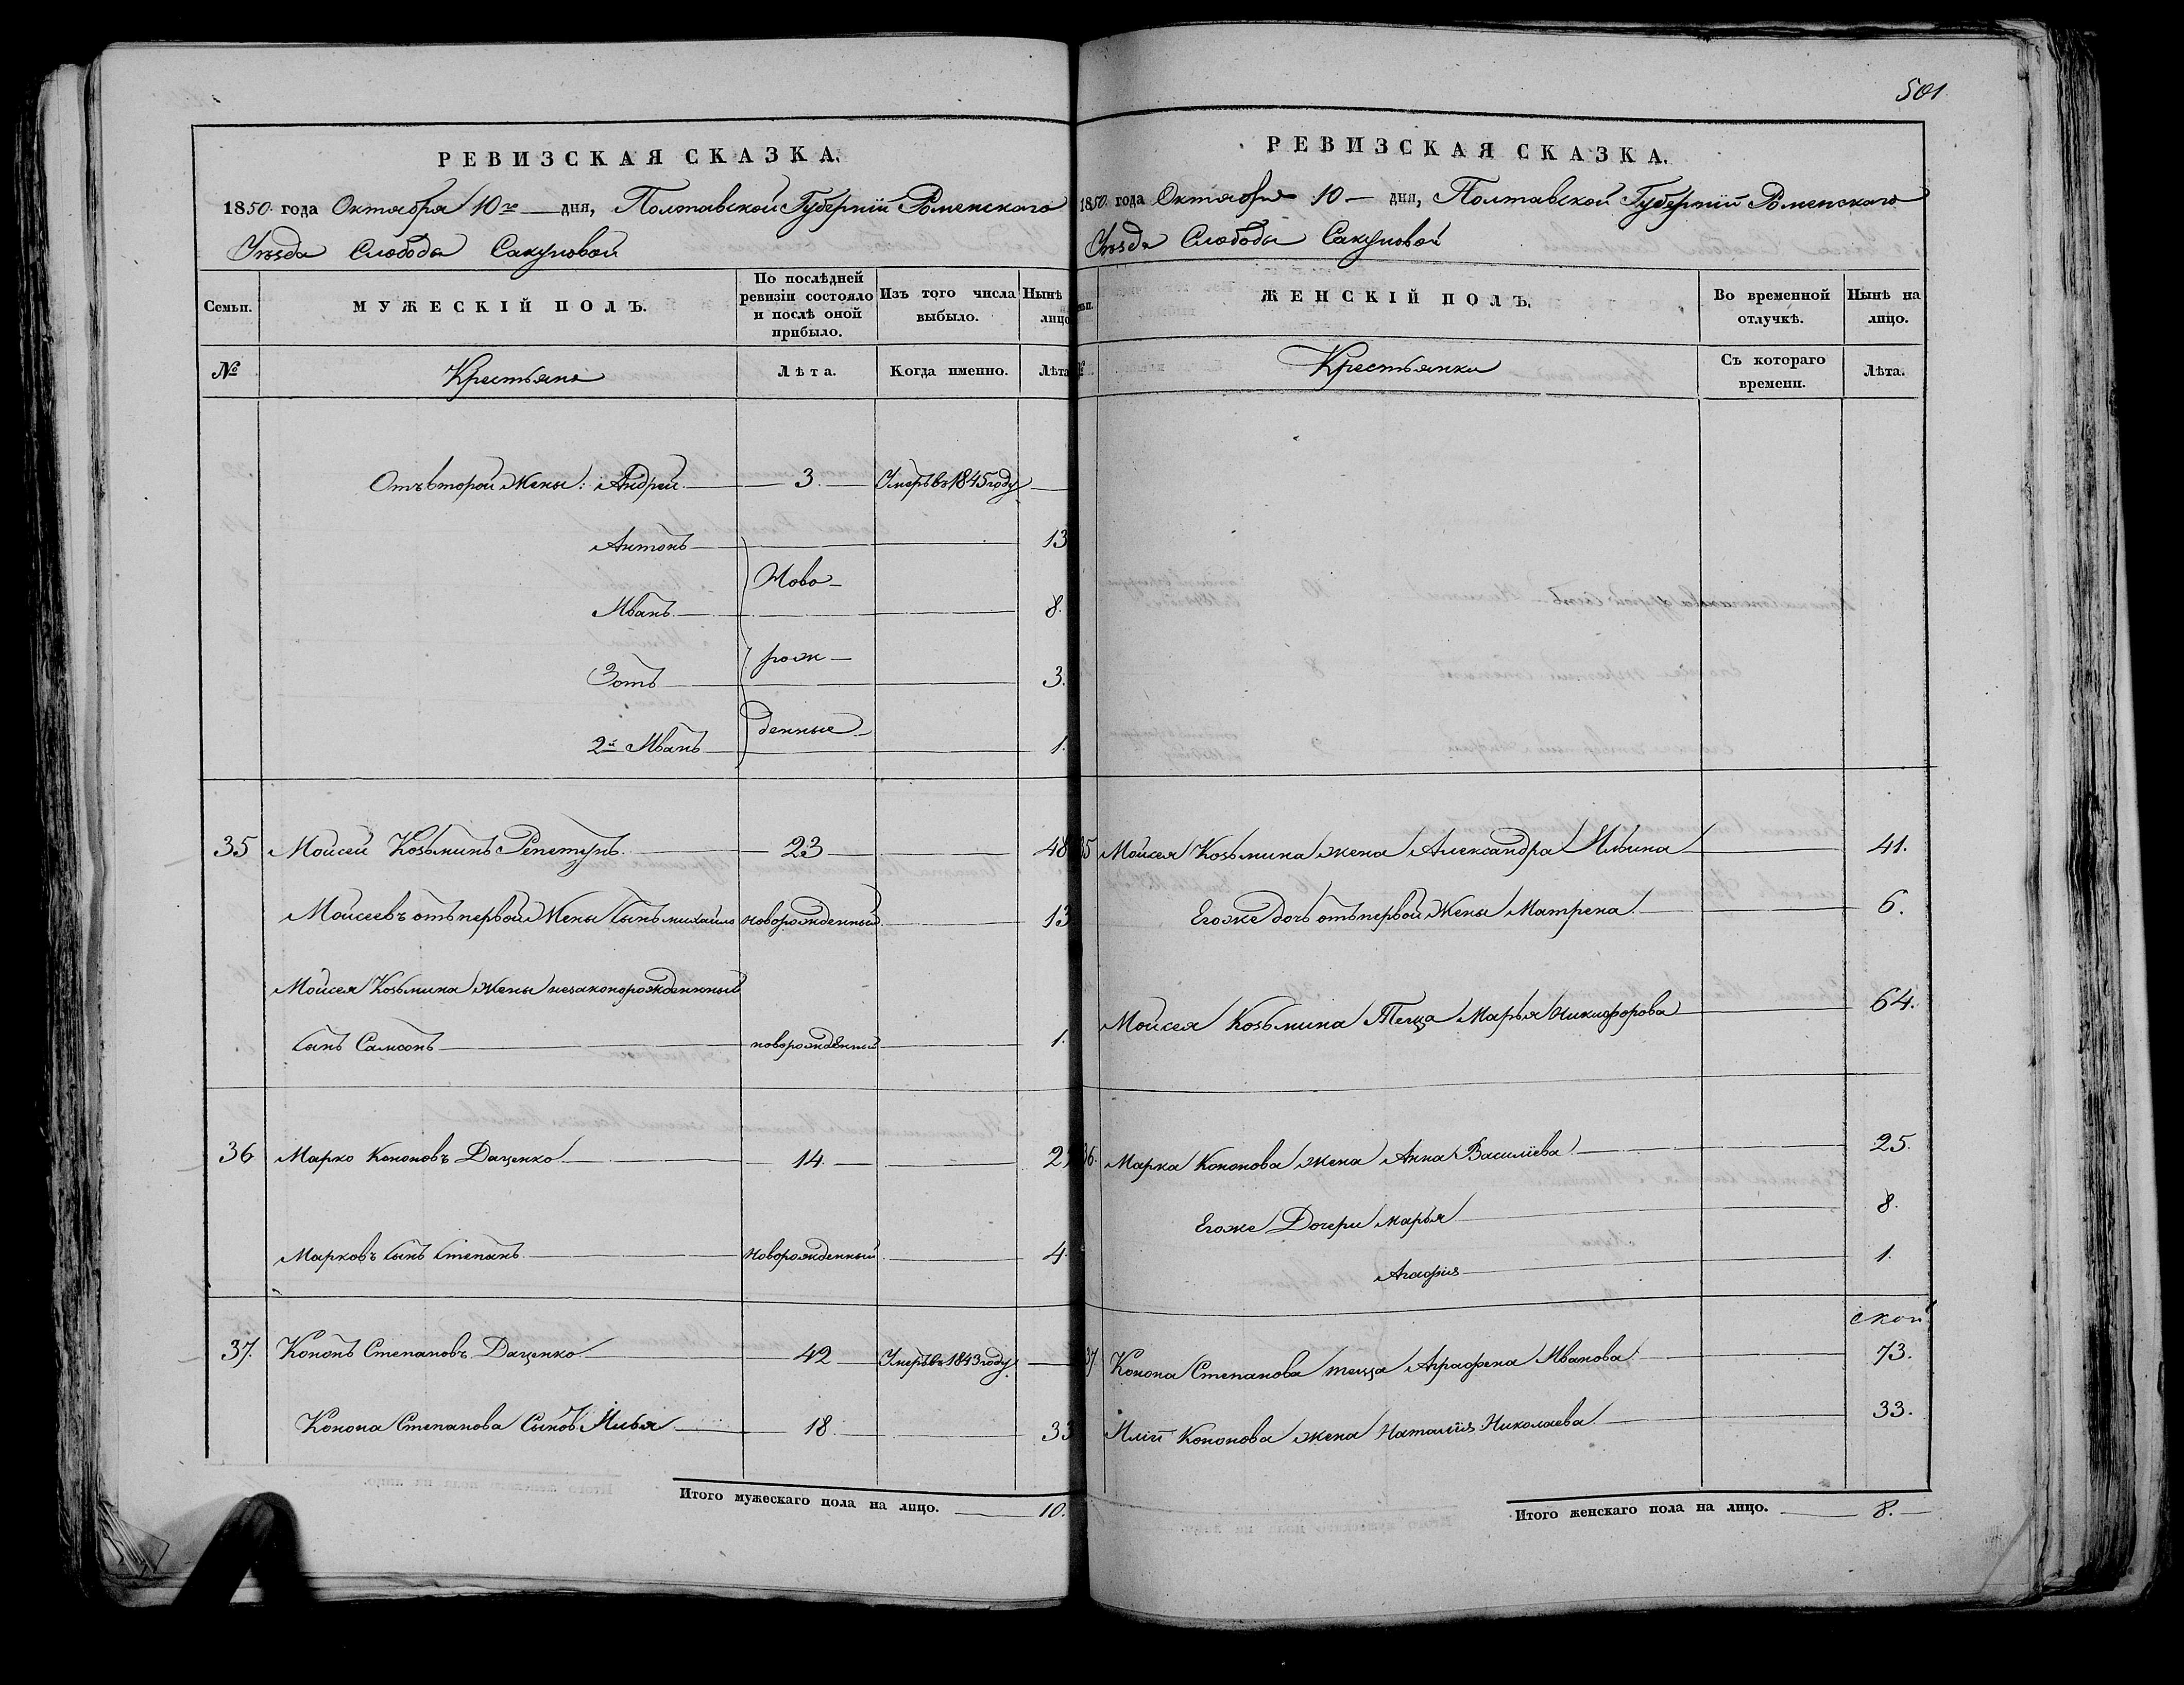 РЕВИЗСКАЯ СКАЗКА.
1850 года Октября 10го дня, Полтавской Губерніи Роменскаго
Уѣзда Слободы Сакуновой
Семьи.
МУЖЕСКІЙ ПОЛЪ.
По послѣдней ревизіи состояло и послѣ оной прибыло.
Изъ того числа выбыло.
Нынѣ лицо
№
Крестьяне
Лѣта.
Когда именно.
Лѣта
Отъ второй Жены: Андрей 3. Умеръ въ 1845 году
Антонъ 13
Ново-
Иванъ 8.
рож-
Зотъ 3.
денные
2й Иванъ 1.
35 Моисей Козьминъ Репетунъ 23 48
Моисеевъ отъ первой Жены Сынъ михайло новорожденный 13
Моисея Козьмина Жены незаконорожденный
Сынъ Самсонъ новорожденный 1.
36 Марко Кононовъ Даценко 14. 2
Марковъ Сынъ Степанъ новорожденный 4.
37. Кононъ Степановъ Даценко 42 Умеръ въ 1843 году
Конона Степанова Сынов. Илья 18. 33
Итого мужескаго пола на лицо. 10.
501
РЕВИЗСКАЯ СКАЗКА.
1850 года Октября 10 дня, Полтавской Губерніи Роменскаго
Уѣзда Слободы Сакуновой
ЖЕНСКІЙ ПОЛЪ.
Во временной отлучкѣ.
Нынѣ на лицо.
Крестьянки
Съ котораго времени.
Лѣта.
35 Моисея Козьмина жена Александра Ильина 41.
Егоже дочь отъ первой Жены Матрена 6.
Моисея Козьмина Теща Марья Никифорова 64.
36. Марка Кононова жена Анна Василіева 25.
Егоже Дочери Марья 8.
Агафія 1.
37 Конона Степанова теща Аграфена Иванова 73.
Иліи Кононова жена Наталія Николаева 33.
Итого женскаго пола на лицо. 8.